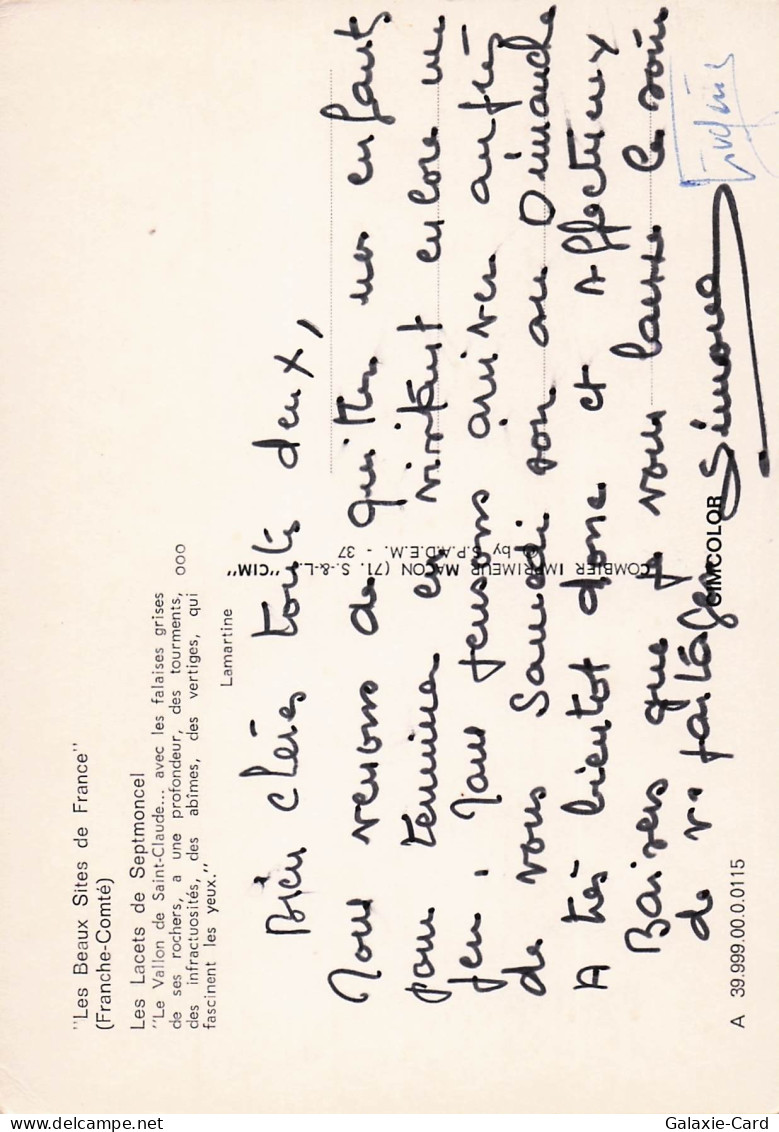 "Les Beaux Sites de France"
(Franche-Comté)
Les Lacets de Septmoncel
"Le Vallon de Saint-Claude... avec les falaises grises
de ses rochers, a une profondeur, des tourments,
des infractuosités, des abîmes, des vertiges, qui
fascinent les yeux."
ooo
Lamartine
Bien chères toutes deux,
Nous venons de quitter nos enfants
pour terminer en visitant encore un
peu. Nous pensons arriver auprès
de vous Samedi soir ou Dimanche
A très bientot donc et affectueux
Baisers que je vous laisse le soin
de vs partager Simone
COMBIER IMPRIMEUR MACON (71. S.-&-L.) "CIM"
by S.P.A.D.E.M. - 37
CIMCOLOR
A 39.999.00.0.0115
Galaxie-Card